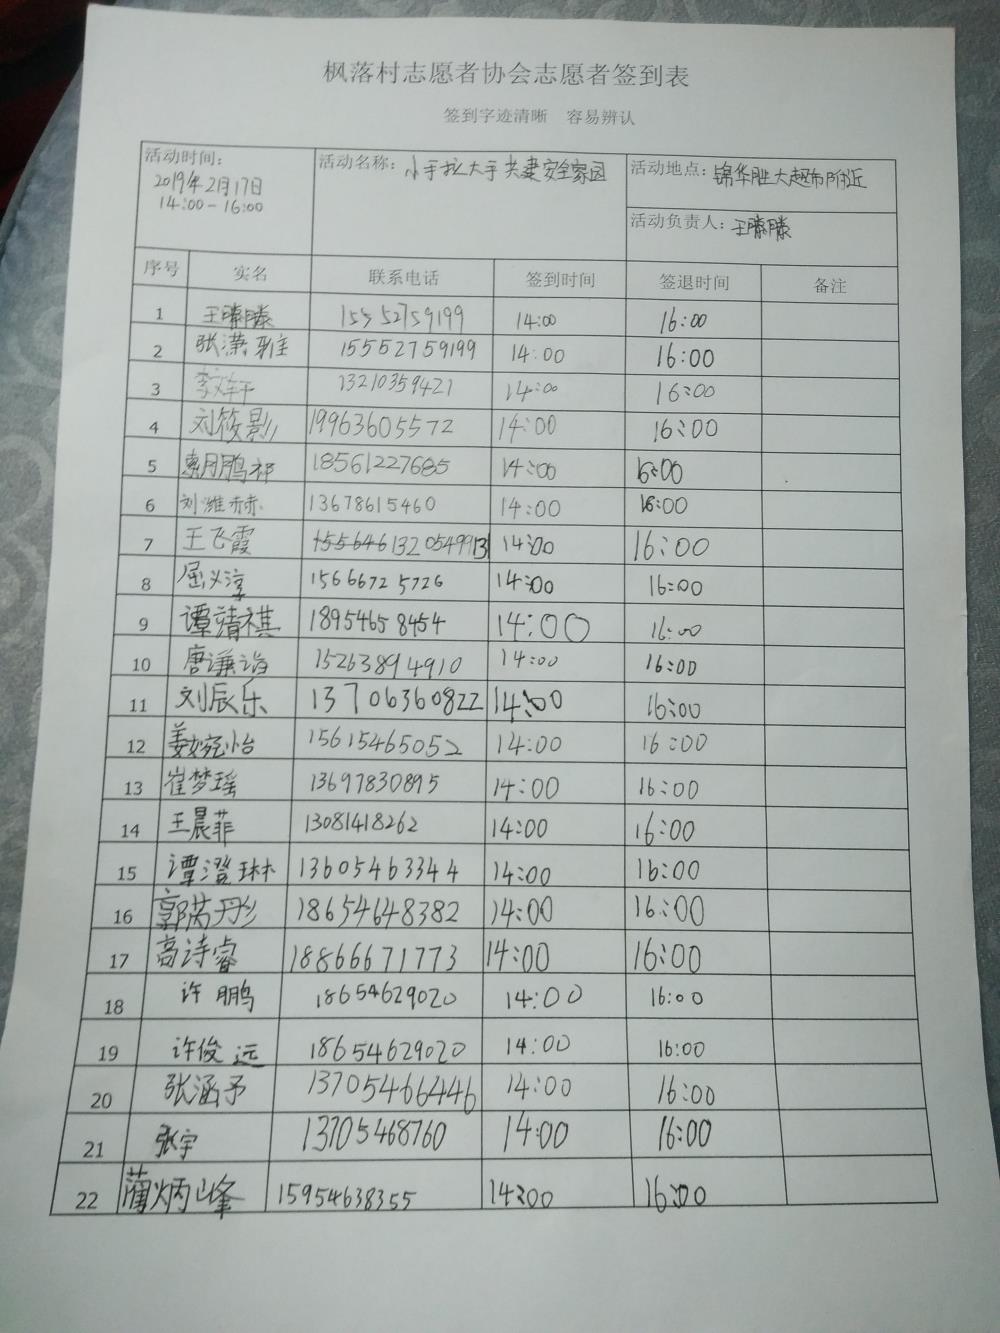 枫落村志愿者协会志愿者签到表
签到字迹清晰 容易辨认
活动时间: 2019年2月17日 14:00-16:00
活动名称: 小手拉大手 共建安全家园
活动地点: 锦华胜大超市附近
活动负责人: 王滕滕
序号 实名 联系电话 签到时间 签退时间 备注
1 王滕滕 15552759199 14:00 16:00
2 张潇雅 15552759199 14:00 16:00
3 李文轩 13210359421 14:00 16:00
4 刘筱影 19963605572 14:00 16:00
5 鹏祁 18561227685 14:00 16:00
6 刘潍赫 13678615460 14:00 16:00
7 王飞霞 1320549913 14:00 16:00
8 屈义淳 15666725726 14:00 16:00
9 谭靖祺 18954658454 14:00 16:00
10 唐谦 15263894910 14:00 16:00
11 刘辰乐 13706360822 14:00 16:00
12 姜婉怡 15615465052 14:00 16:00
13 崔梦瑶 13697830895 14:00 16:00
14 王晨菲 13081418262 14:00 16:00
15 谭澄琳 13605463344 14:00 16:00
16 郭芮彤 18654648382 14:00 16:00
17 高诗睿 18866671773 14:00 16:00
18 许鹏 18654629020 14:00 16:00
19 许俊远 18654629020 14:00 16:00
20 张涵予 13705466446 14:00 16:00
21 张宇 13705468760 14:00 16:00
22 蔺炳峰 15954638355 14:00 16:00